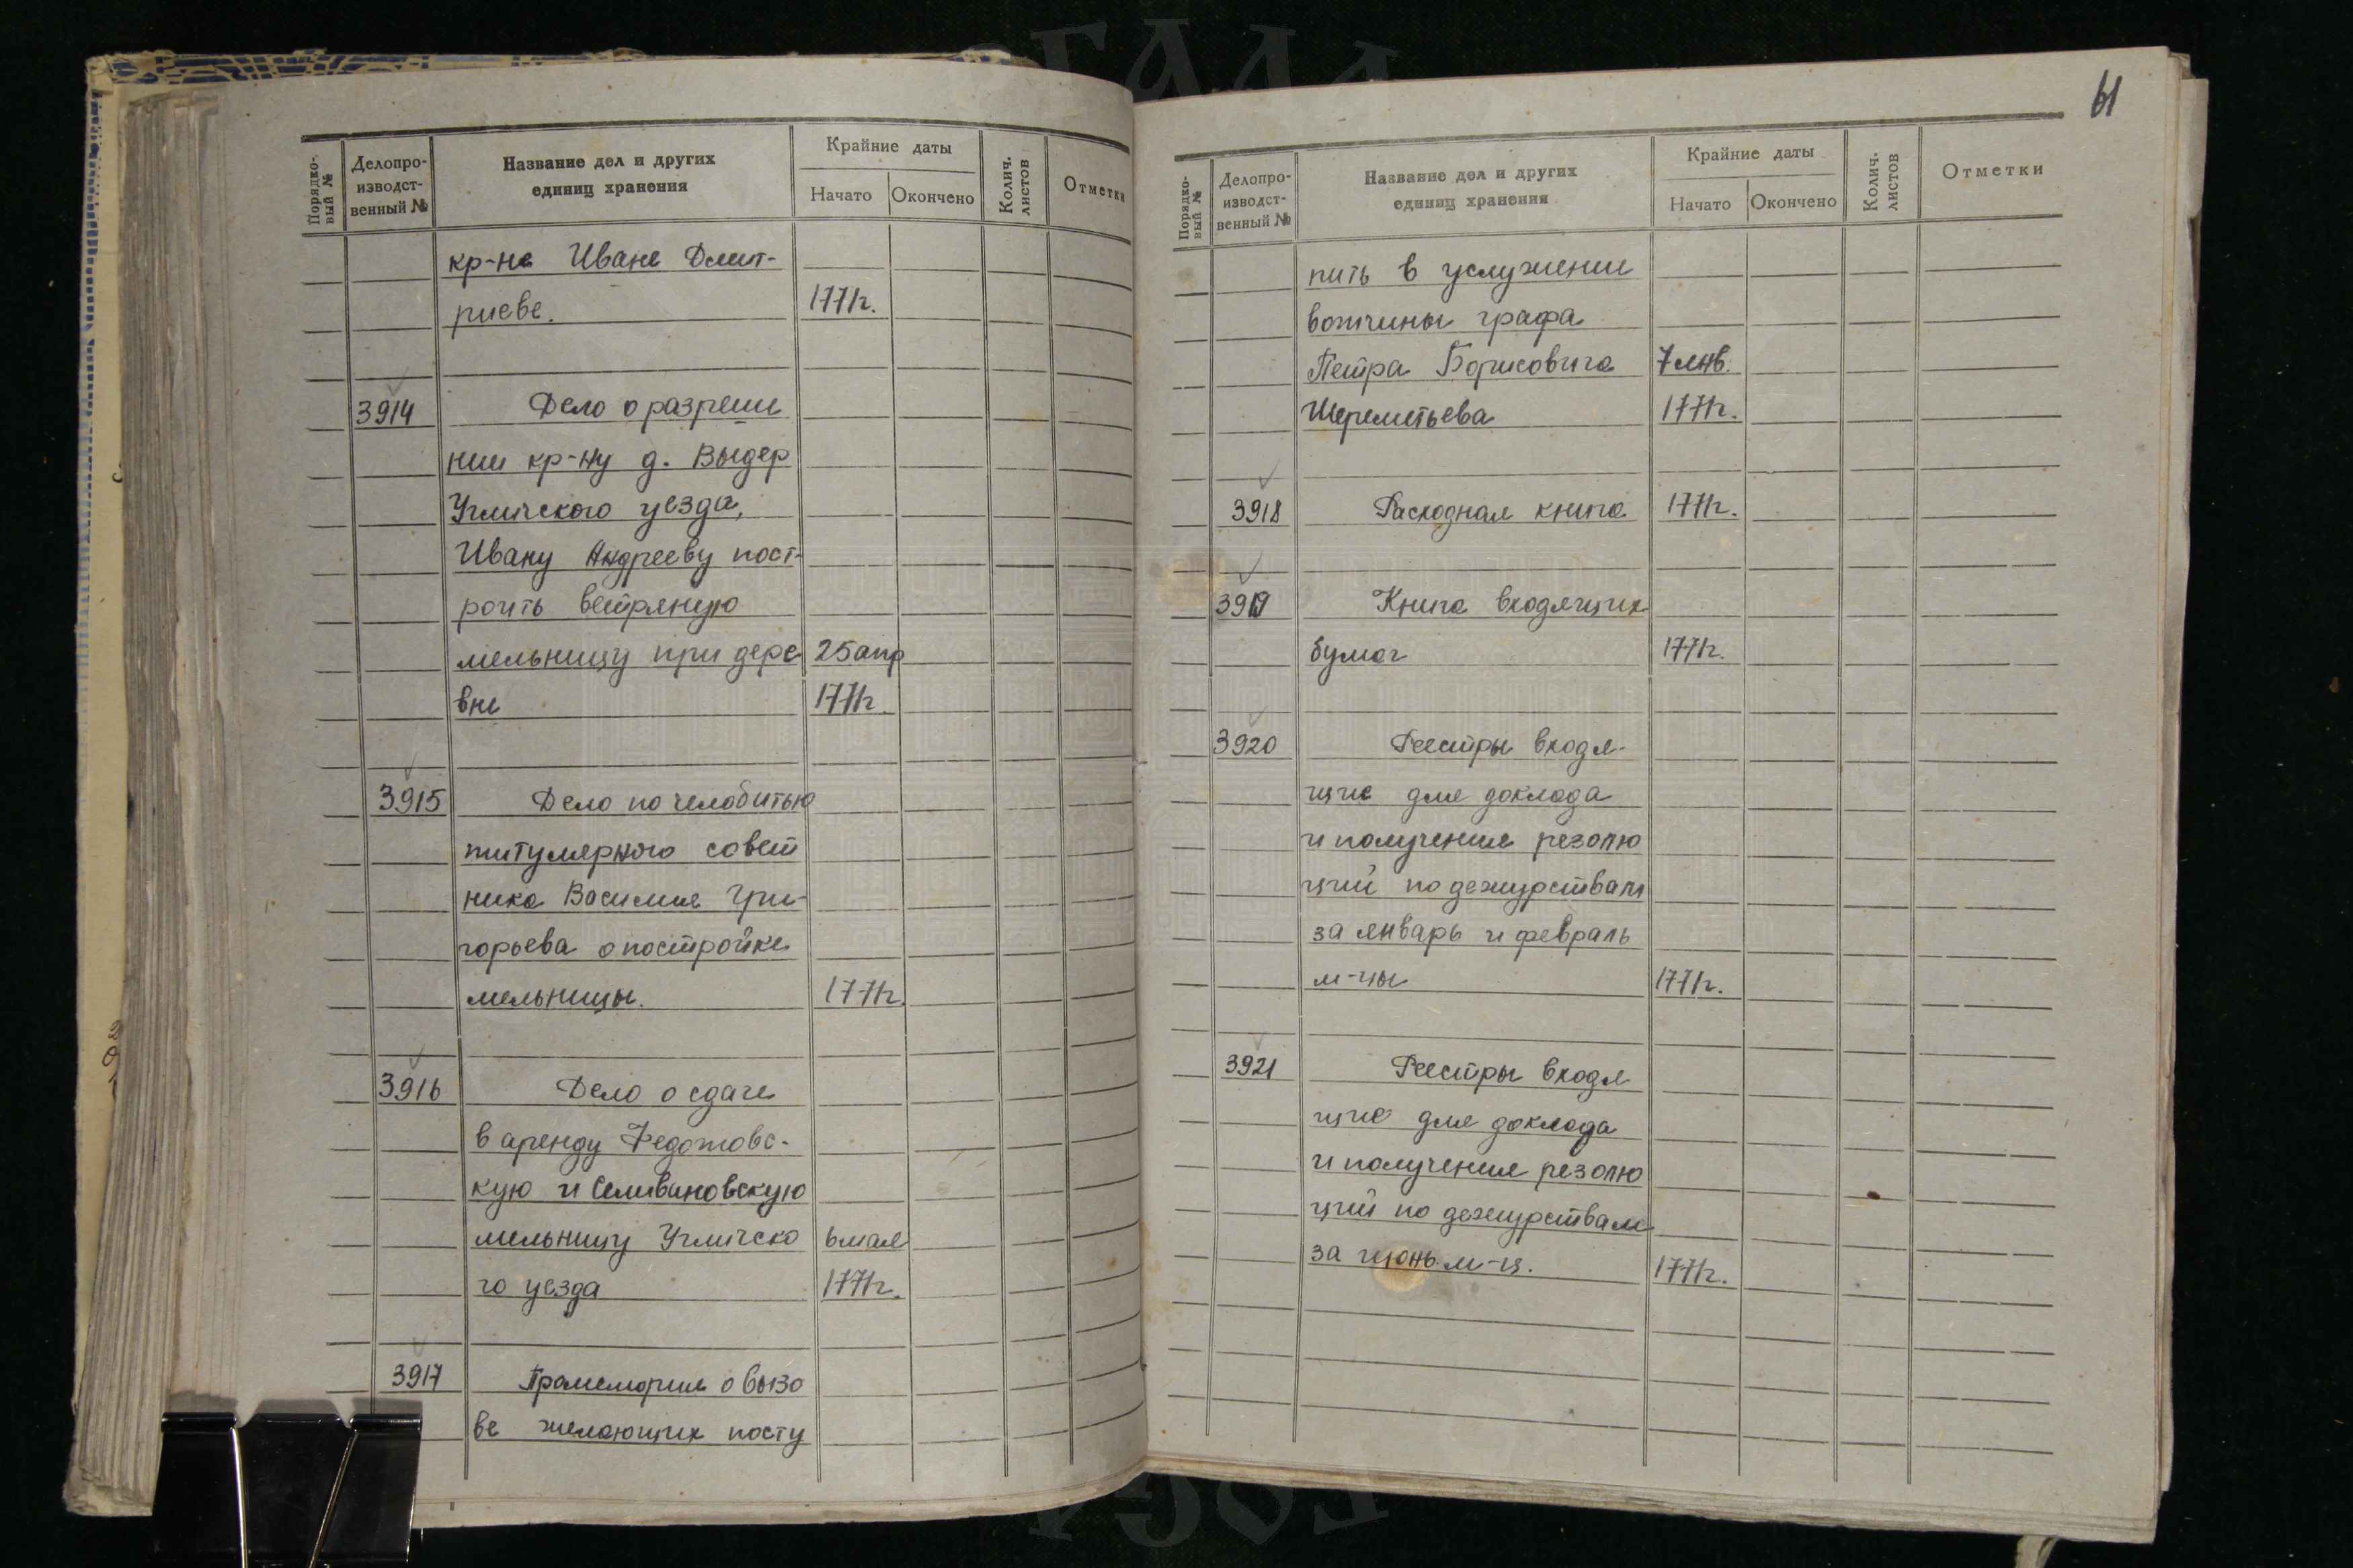 Порядко-
вый №
Делопро-
изводст-
венный №
Название дел и других
единиц хранения
Крайние даты
Начато
Окончено
Колич.
листов
Отметки
кр-не Иване Дмит-
риеве. 1771г.
3914 Дело о разреше
нии кр-ну д. Выдер
Угличского уезда,
Ивану Андрееву пост-
роить ветряную
мельницу при дере 25 апр
вне 1771г.
3915 Дело по челобитью
титулярного совет
ника Василия Гри-
горьева о постройке
мельницы. 1771г.
3916 Дело о сдаче
в аренду Федотовс-
кую и Селивановскую
мельницу Угличско 6 мая
го уезда 1771г.
3917 Промемория о вызо
ве желающих посту
61
Порядко-
вый №
Делопро-
изводст-
венный №
Название дел и других
единиц хранения
Крайние даты
Начато
Окончено
Колич.
листов
Отметки
пить в услужении
вотчины графа
Петра Борисовича 7 янв.
Шереметьева 1771г.
3918 Расходная книга 1771г.
3919 Книга входящих
бумаг 1771г.
3920 Реестры входя-
щие для доклада
и получения резолю
ций по дежурствам
за январь и февраль
м-цы 1771г.
3921 Реестры входя
щие для доклада
и получения резолю
ций по дежурствам
за июнь м-ц. 1771г.